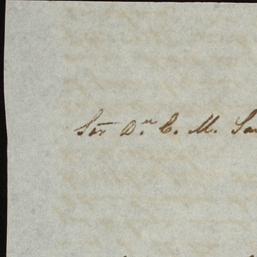 Sor Dn. C. M. Sa